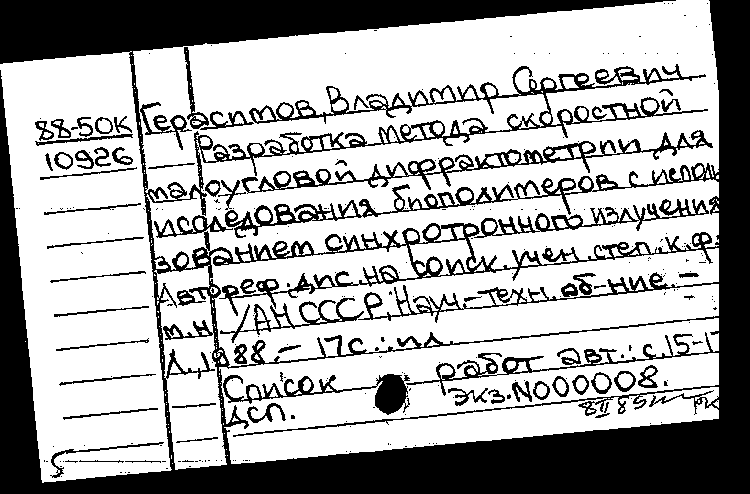 Герасимов, Владимир Сергеевич.
88-50К
10926
Разработка метода скоростной
малоугловой дифрактометрии для
исследования биополимеров с исполь
зованием синхротронного излучения
Автореф. дис. на соиск. учен. степ. к. ф.-
м. н. /АН СССР, Науч.-техн. об-ние. –
Л., 1988. – 17 с.: ил.
Список работ авт.: с. 15-17
ДСП. экз. N000008.
8 II 89